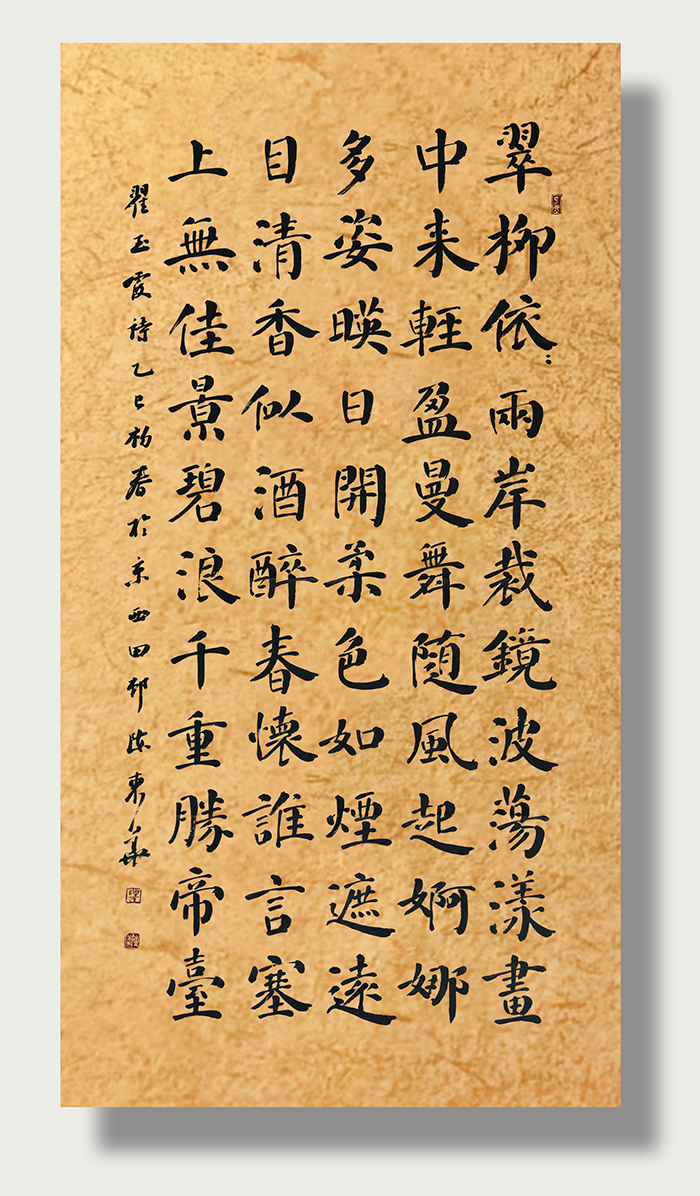 翠柳依:兩岸裁鏡波蕩漾畫
中来輕盈曼舞随風起婀娜
多姿暎日開柔色如煙遮遠
目清香似酒醉春懷誰言塞
上無佳景碧浪千重勝帝臺
翟玉霞詩乙巳初春於京西田邨陈東華